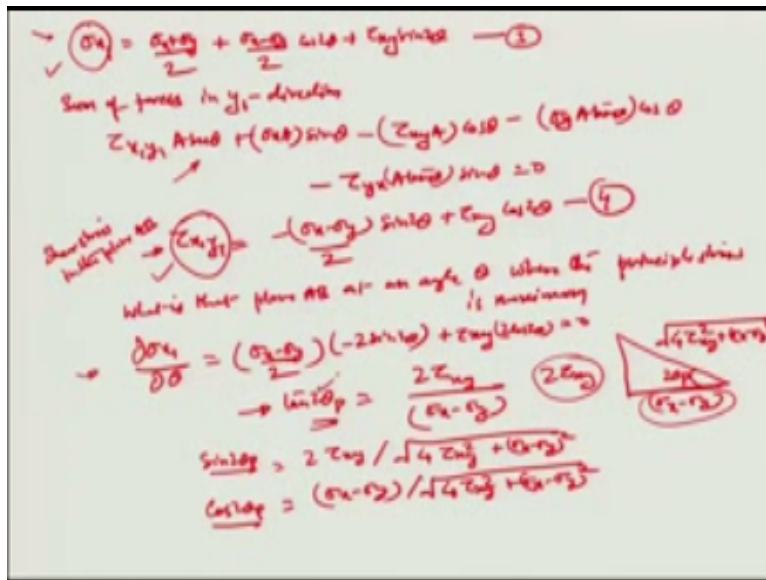 σx₁ = (σx+σy)/2 + (σx-σy)/2 cos2θ + τxy sin2θ — ①
Sum of forces in y₁-direction
τx₁y₁ A secθ + (σxA) sinθ - (τxyA) cosθ - (σyA tanθ) cosθ
- τyx(A tanθ) sinθ = 0
Shear stress
plane AB → τx₁y₁ = -(σx-σy)/2 sin2θ + τxy cos2θ — ④
what is that plane AB at an angle θ where the principle stress
is maximum
→ ∂σx₁/∂θ = (σx-σy)/2 (-2sin2θ) + τxy(2cos2θ) = 0
→ tan2θp = 2τxy/(σx-σy) 2τxy √4τxy²+(σx-σy) 2θp (σx-σy)
sin2θp = 2τxy/√4τxy²+(σx-σy)²
cos2θp = (σx-σy)/√4τxy²+(σx-σy)²